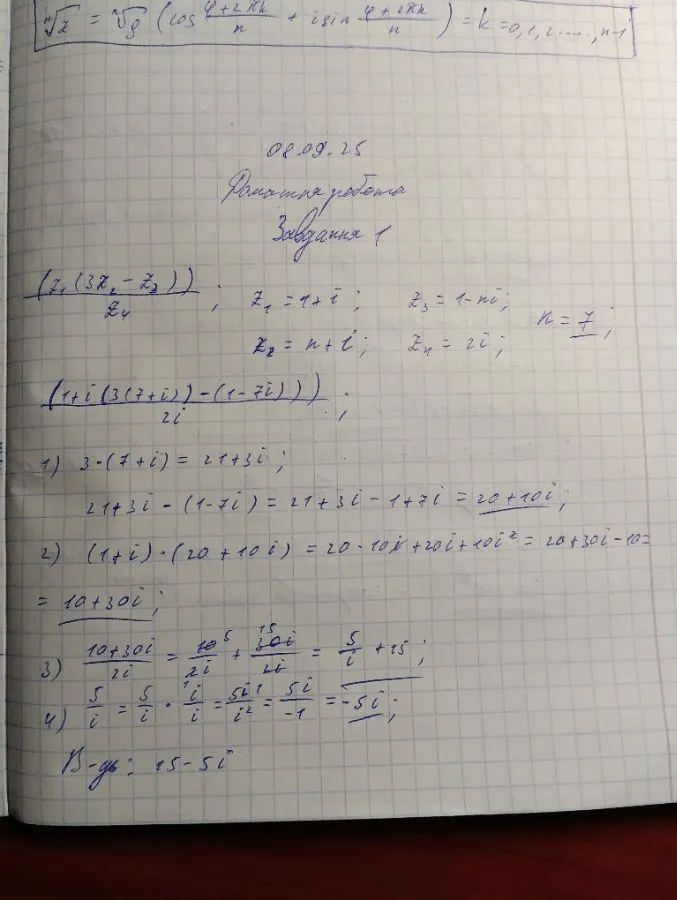 ⁿ√z = ⁿ√ρ (cos (φ+2πk)/n + i sin (φ+2πk)/n) = k=0,1,2.....,n-1
08.09.25
Домашня робота
Завдання 1
(z₁(3z₂-z₃))/z₄ ; z₁=1+i; z₃=1-ni; n=7;
z₂=n+i; z₄=2i;
(1+i(3(7+i))-(1-7i)))/2i ;
1) 3·(7+i)=21+3i;
21+3i-(1-7i)=21+3i-1+7i=20+10i;
2) (1+i)·(20+10i)=20·10i+20i+10i²=20+30i-10=
=10+30i;
3) (10+30i)/2i = 10⁵/2i + 30i¹⁵/2i = 5/i +15;
4) 5/i = 5/i · i/i = 5i/i² = 5i/-1 = -5i;
В-дь: 15-5i